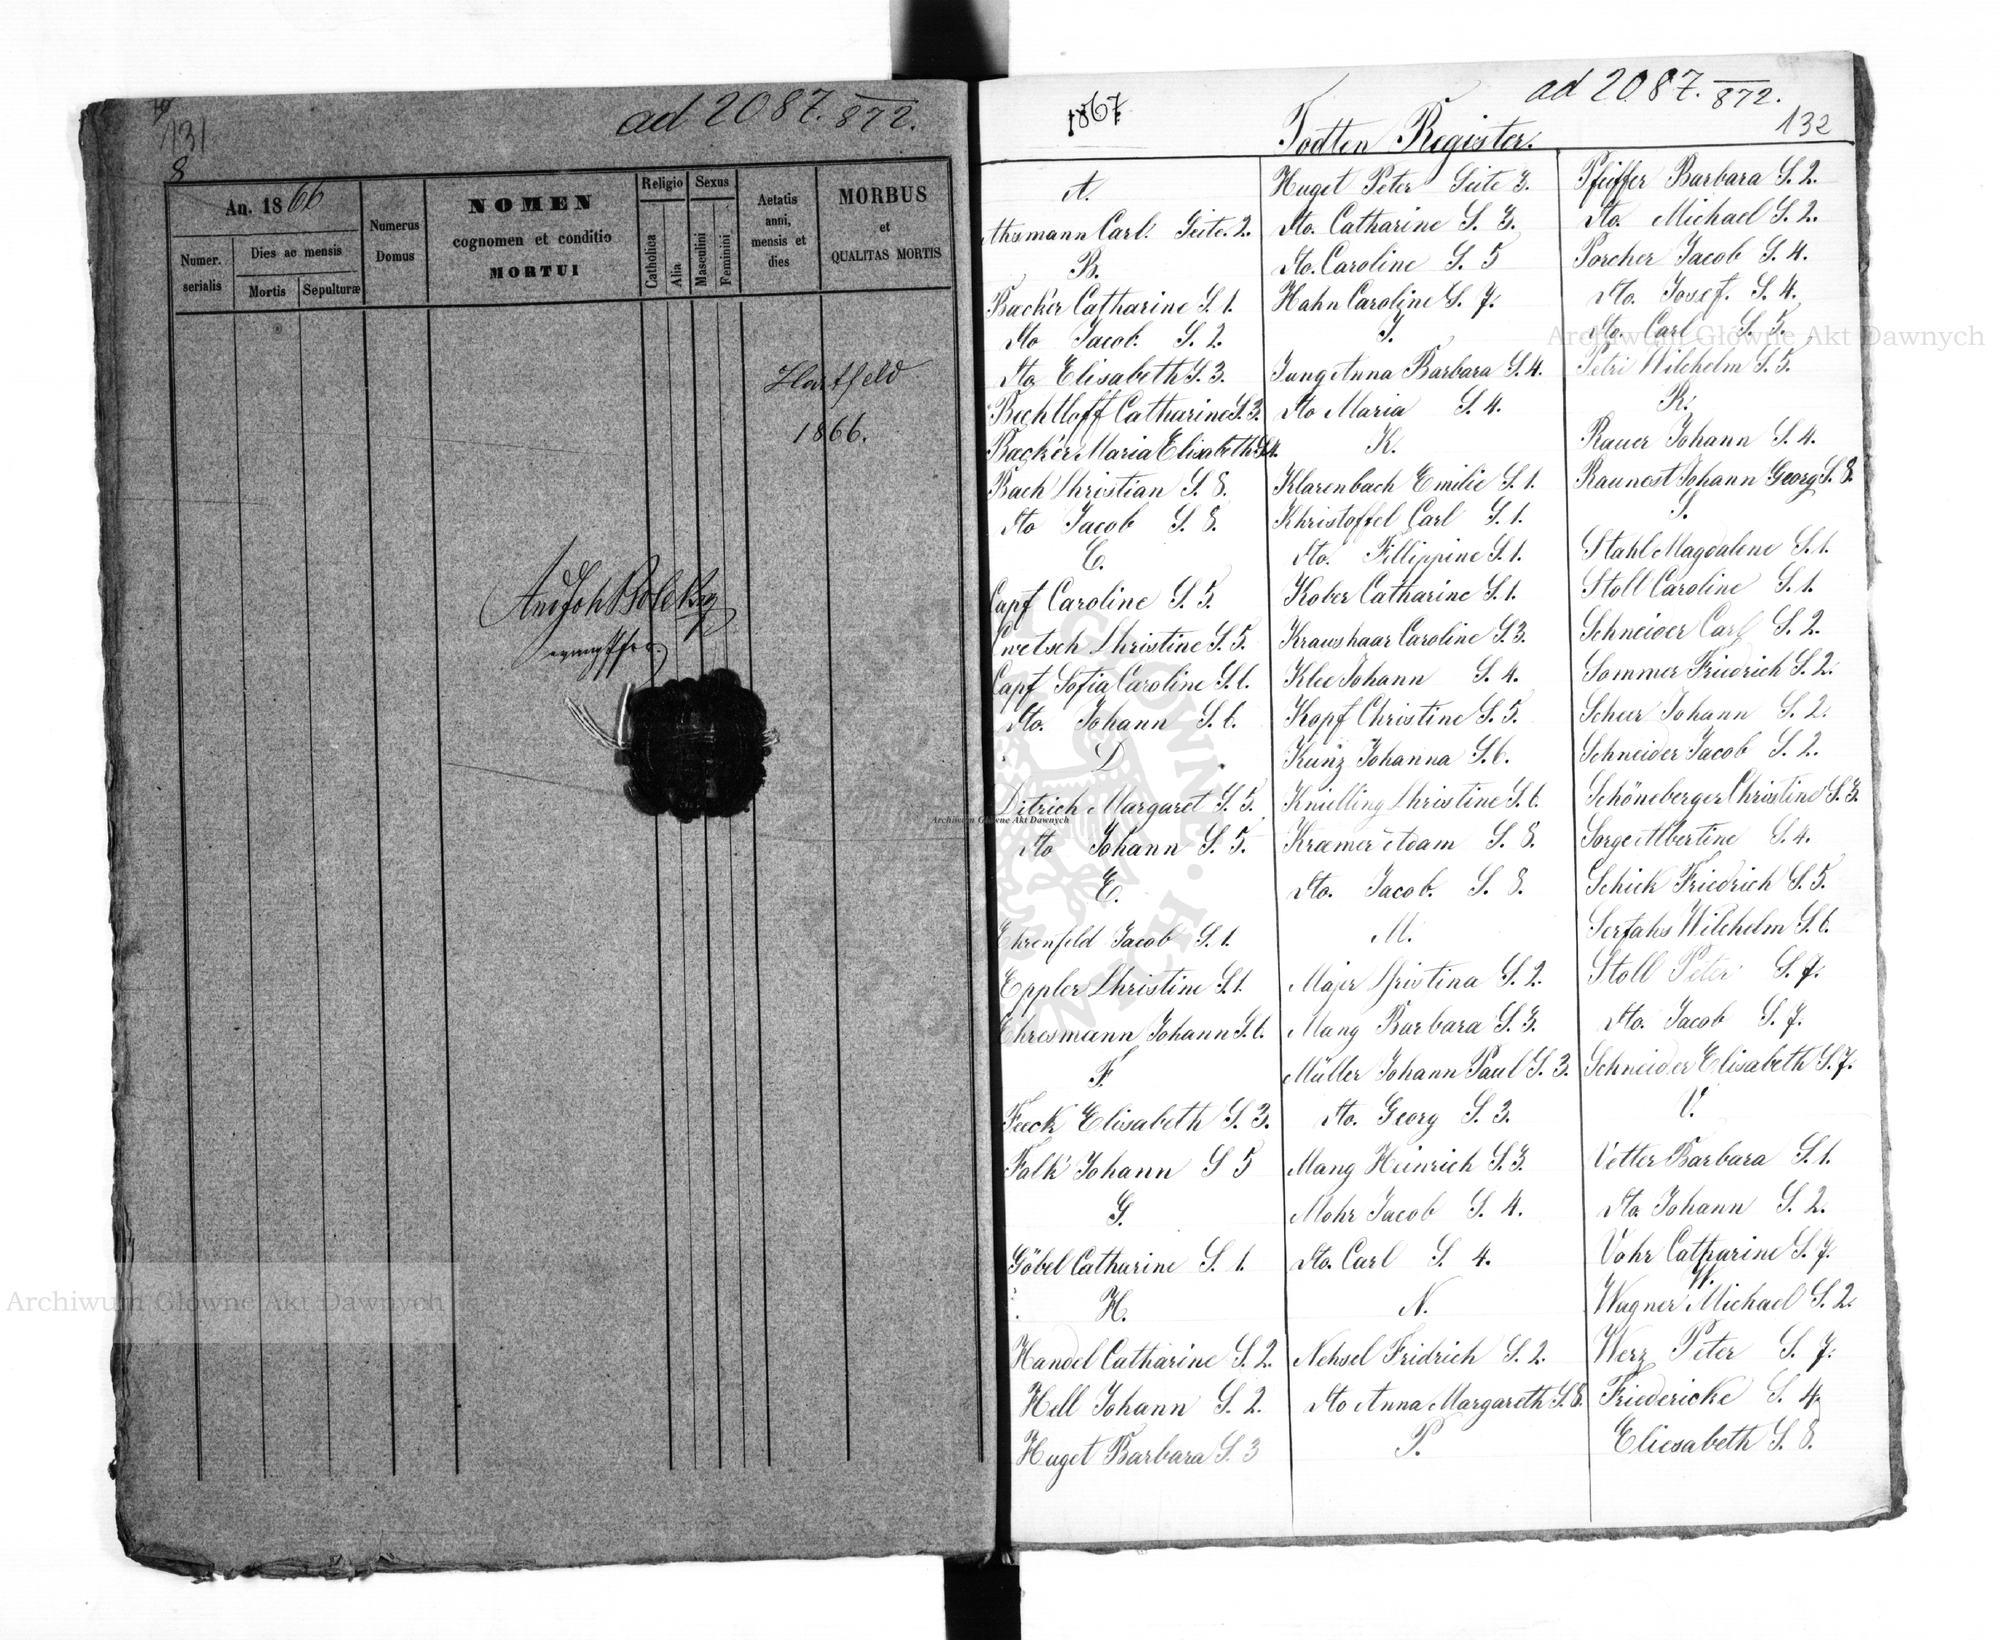 131
8
ad 2087. 872.
An. 1866
Numer. serialis
Dies ac mensis
Mortis
Sepulturæ
Numerus Domus
NOMEN
cognomen et conditio
MORTUI
Religio
Catholica
Alia
Sexus
Masculini
Feminini
Aetatis anni, mensis et dies
MORBUS
et
QUALITAS MORTIS
Hartfeld
1866.
1867.
ad 2087. 872.
132
Todten Register.
A.
Carl. Seite. 2.
B.
Backer Catharine S. 1.
dto Jacob. S. 2.
dto Elisabeth S. 3.
Bechtloff Catharine S. 3.
Backer Maria Elisabeth S. 4.
Bach Christian S. 8.
dto Jacob S. 8.
C.
Capf Caroline S. 5.
Christine S. 5.
Capf Sofia Caroline S. 6.
dto. Johann S. 6.
D
Ditrich Margaret S. 5.
dto Johann S. 5.
E.
Ehrenfeld Jacob S. 1.
Eppler Christine S. 1.
Ehresmann Johann S. 6.
F.
Feeck Elisabeth S. 3.
Falk Johann S 5
G.
Göbel Catharine S. 1.
H.
Handel Catharine S. 2.
Hell Johann S. 2.
Huget Barbara S. 3
Huget Peter Seite 3.
dto. Catharine S. 3.
dto. Caroline S. 5
Hahn Caroline S. 7.
J.
Jung Anna Barbara S. 4.
dto Maria S. 4.
K.
Klarenbach Emilie S. 1.
Khristoffel Carl S. 1.
dto. Fillippine S. 1.
Kober Catharine S. 1.
Kraushaar Caroline S. 3.
Klee Johann S. 4.
Kopf Christine S. 5.
Kunz Johanna S. 6.
Knielling Christine S. 6.
Kræmer Adam S. 8.
dto. Jacob. S. 8.
M.
Majer Christina S. 2.
Mang Barbara S. 3.
Müller Johann Paul S. 3.
dto. Georg S. 3.
Mang Heinrich S. 3.
Mohr Jacob S. 4.
dto. Carl S. 4.
N.
Nehsel Fridrich S. 2.
dto Anna Margareth S. 8.
P.
Pfeiffer Barbara S. 2.
dto. Michael S. 2.
Porcher Jacob S. 4.
dto. Josef. S. 4.
dto. Carl S. 5.
Petri Wilchelm S. 5.
R.
Rauer Johann S. 4.
Johann Georg S. 8.
S.
Stahl Magdalene S. 1.
Stoll Caroline S. 1.
Schneider Carl S. 2.
Sommer Friedrich S. 2.
Scheer Johann S. 2.
Schneider Jacob S. 2.
Schöneberger Christine S. 3.
Sorge Albertine S. 4.
Schick Friedrich S. 5.
Serfahs Wilchelm S. 6.
Stoll Peter S. 7.
dto. Jacob S. 7.
Schneider Elisabeth S. 7.
V.
Vetter Barbara S. 1.
dto. Johann S. 2.
Vohr Catharine S. 7.
W.
Wagner Michael S. 2.
Werz Peter S. 7.
Friedericke S. 4.
Eliesabeth S. 8.
Archiwum Główne Akt Dawnych
Archiwum Główne Akt Dawnych
Archiwum Główne Akt Dawnych